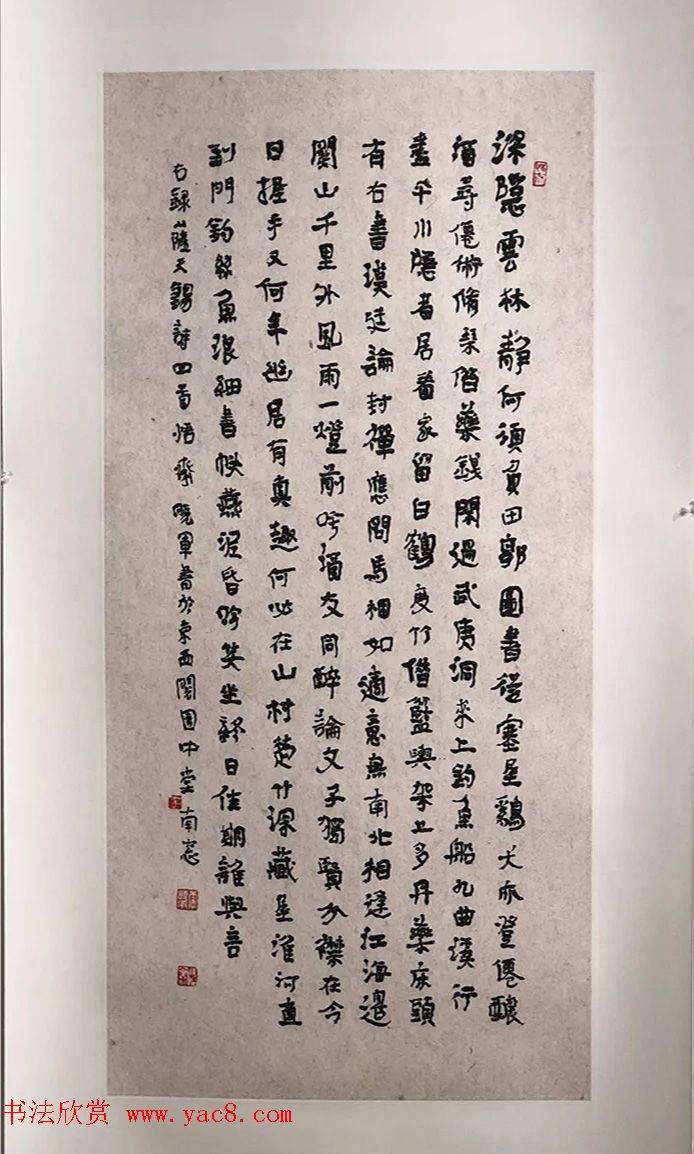 深隱雲林靜何須負田郭圖書從塞屋鷄犬亦登僊釀
酒尋僊術脩琴借藥錢閑過武夷洞來上釣魚船九曲溪行
盡平川隱者居看家留白鶴度竹借籃輿架上多丹藥床頭
有古書漢廷論封禪應問馬相如適意無南北相逢江海邊
關山千里外風雨一燈前吟適友同醉論文子獨賢分襟在今
日握手又何年幽居有真趣何必在山村楚竹深藏屋淮河直
到門釣絲魚浪細書帙燕泥昏吟笑坐終日佳期誰與言
右録薩天錫詩四首悟齋曉軍書於東西閣園中堂南窓
书法欣赏 www.yac8.com